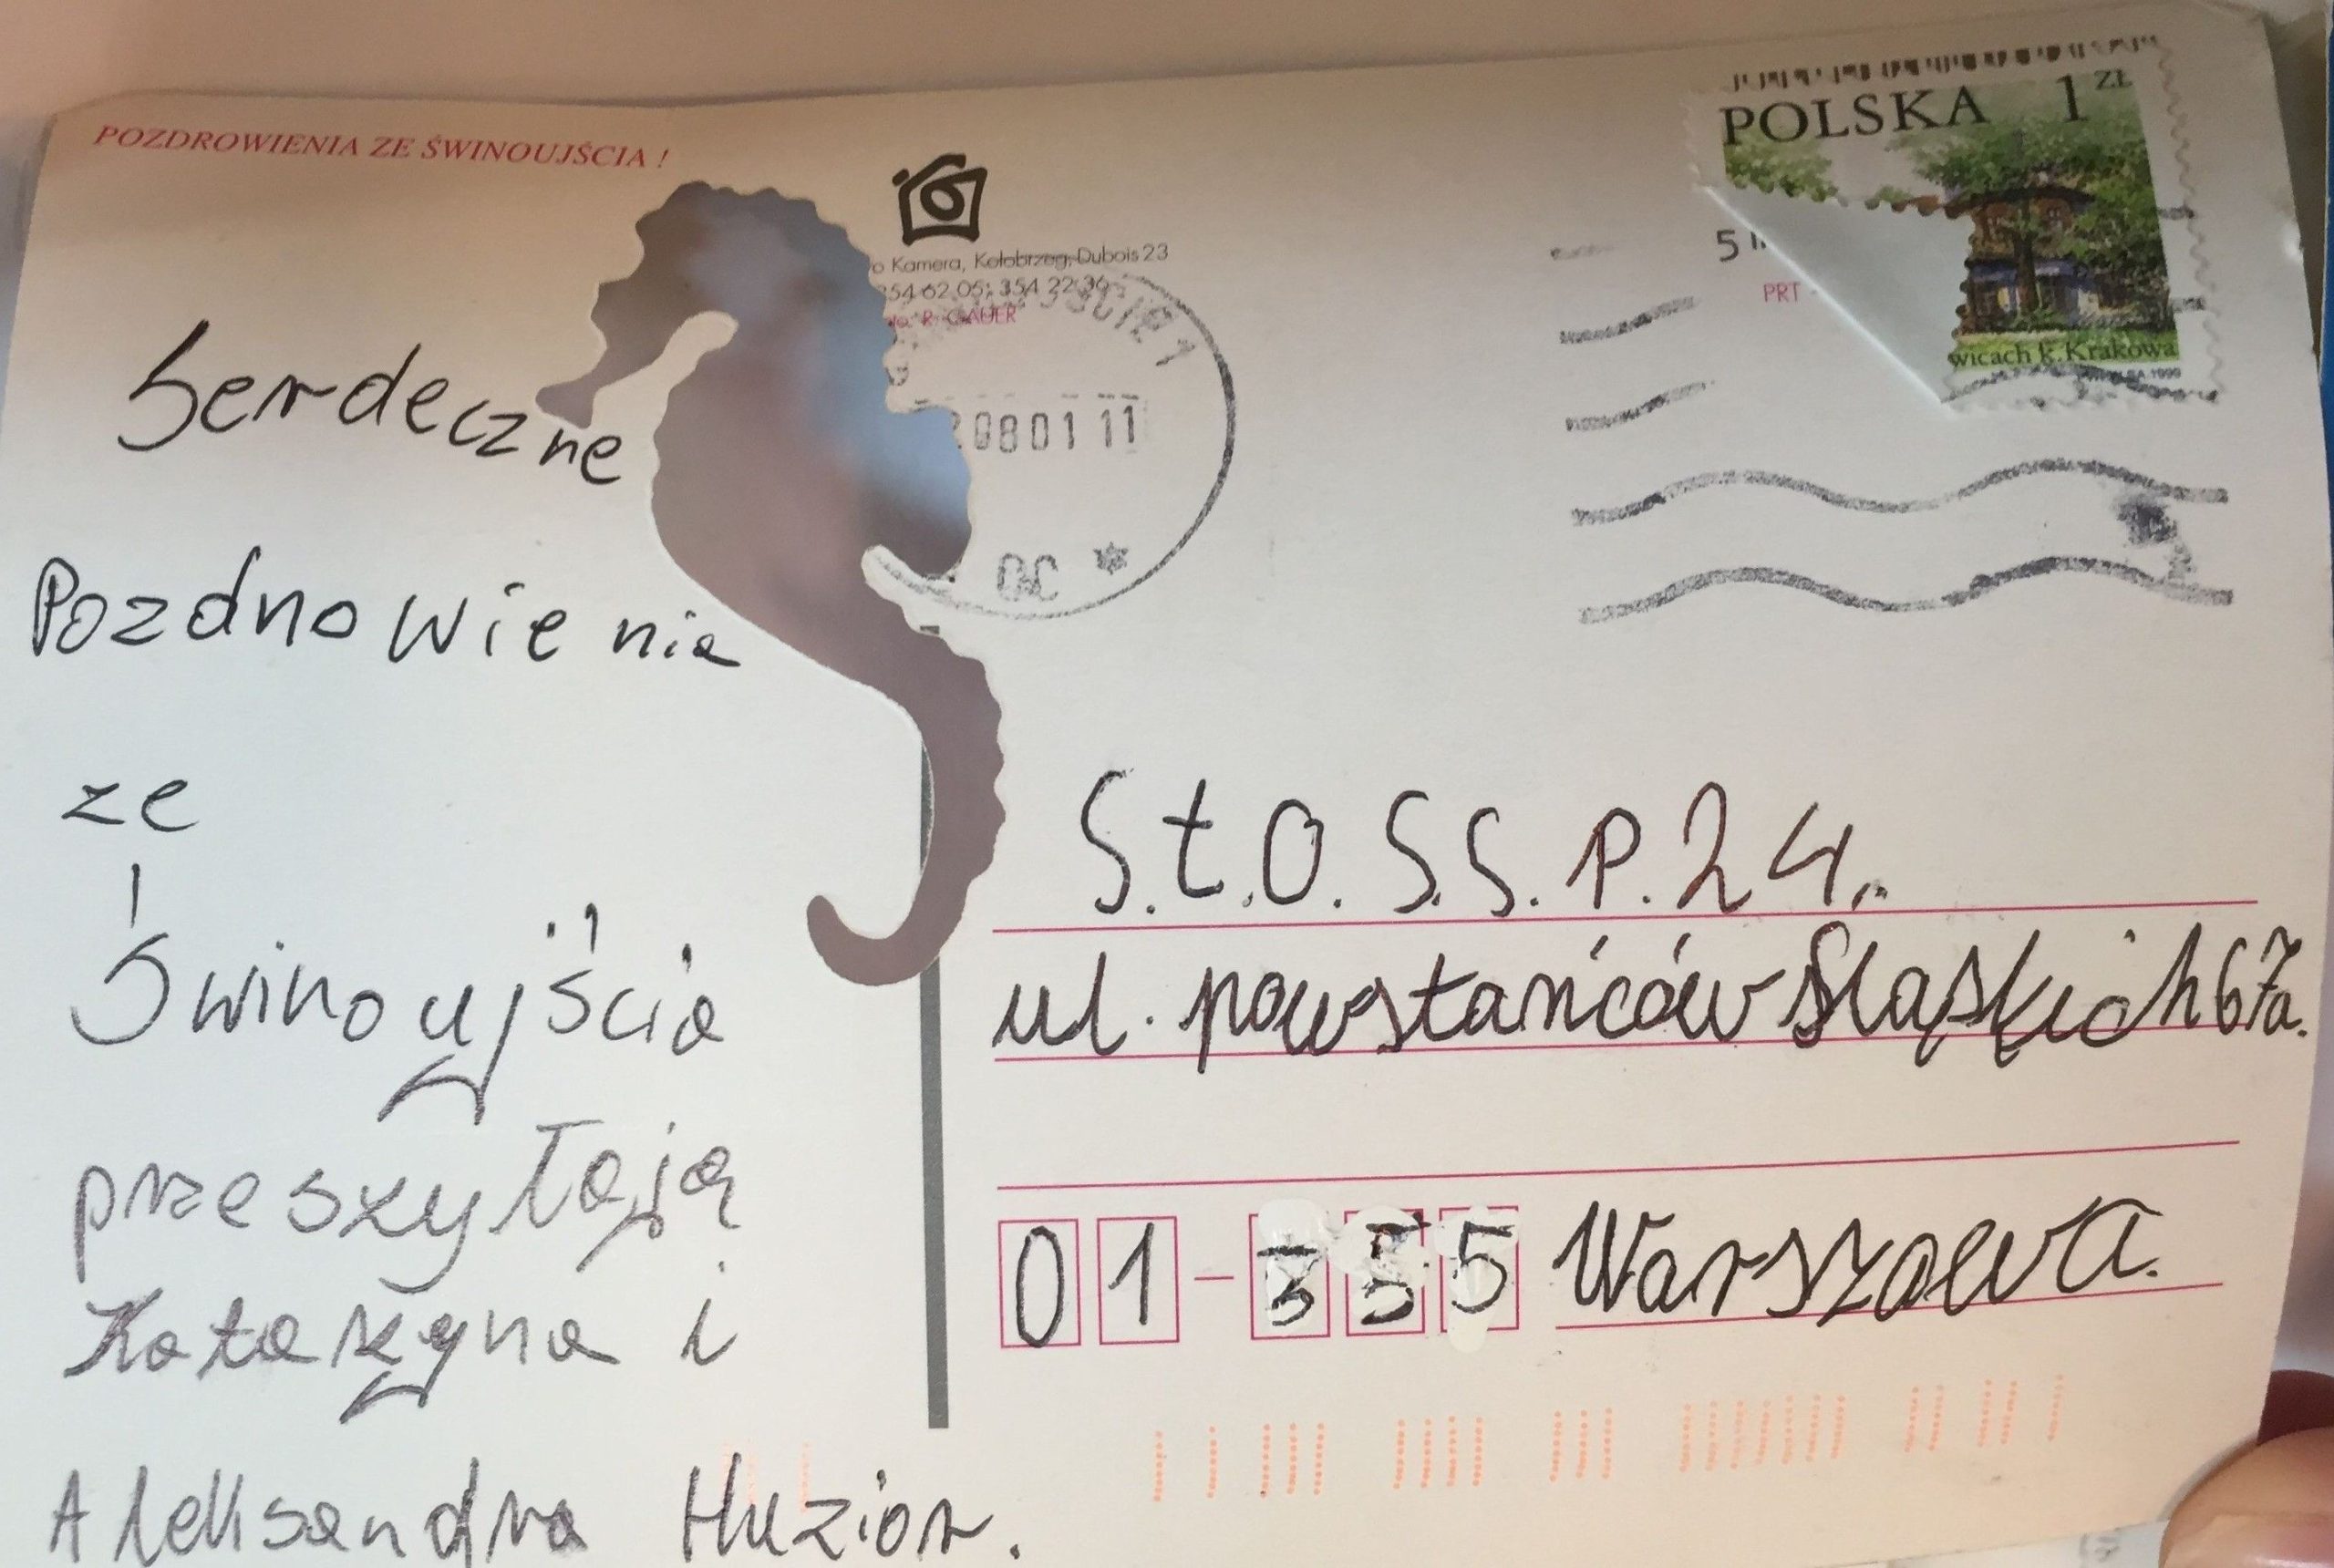 POZDROWIENIA ZE ŚWINOUJŚCIA !
Kamera, Kołobrzeg, Dubois 23
354 62 05; 354 22 36
R. GAUER
POLSKA 1 ZŁ
wicach k. Krakowa
1999
PRT
0801 11
Serdeczne
Pozdrowienia
ze
Świnoujścia
przesyłają
Katarzyna i
Aleksandra Huzior.
S.t.O. S.S. P. 24.
ul. powstańców Śląskich 67a.
01-355 Warszawa.